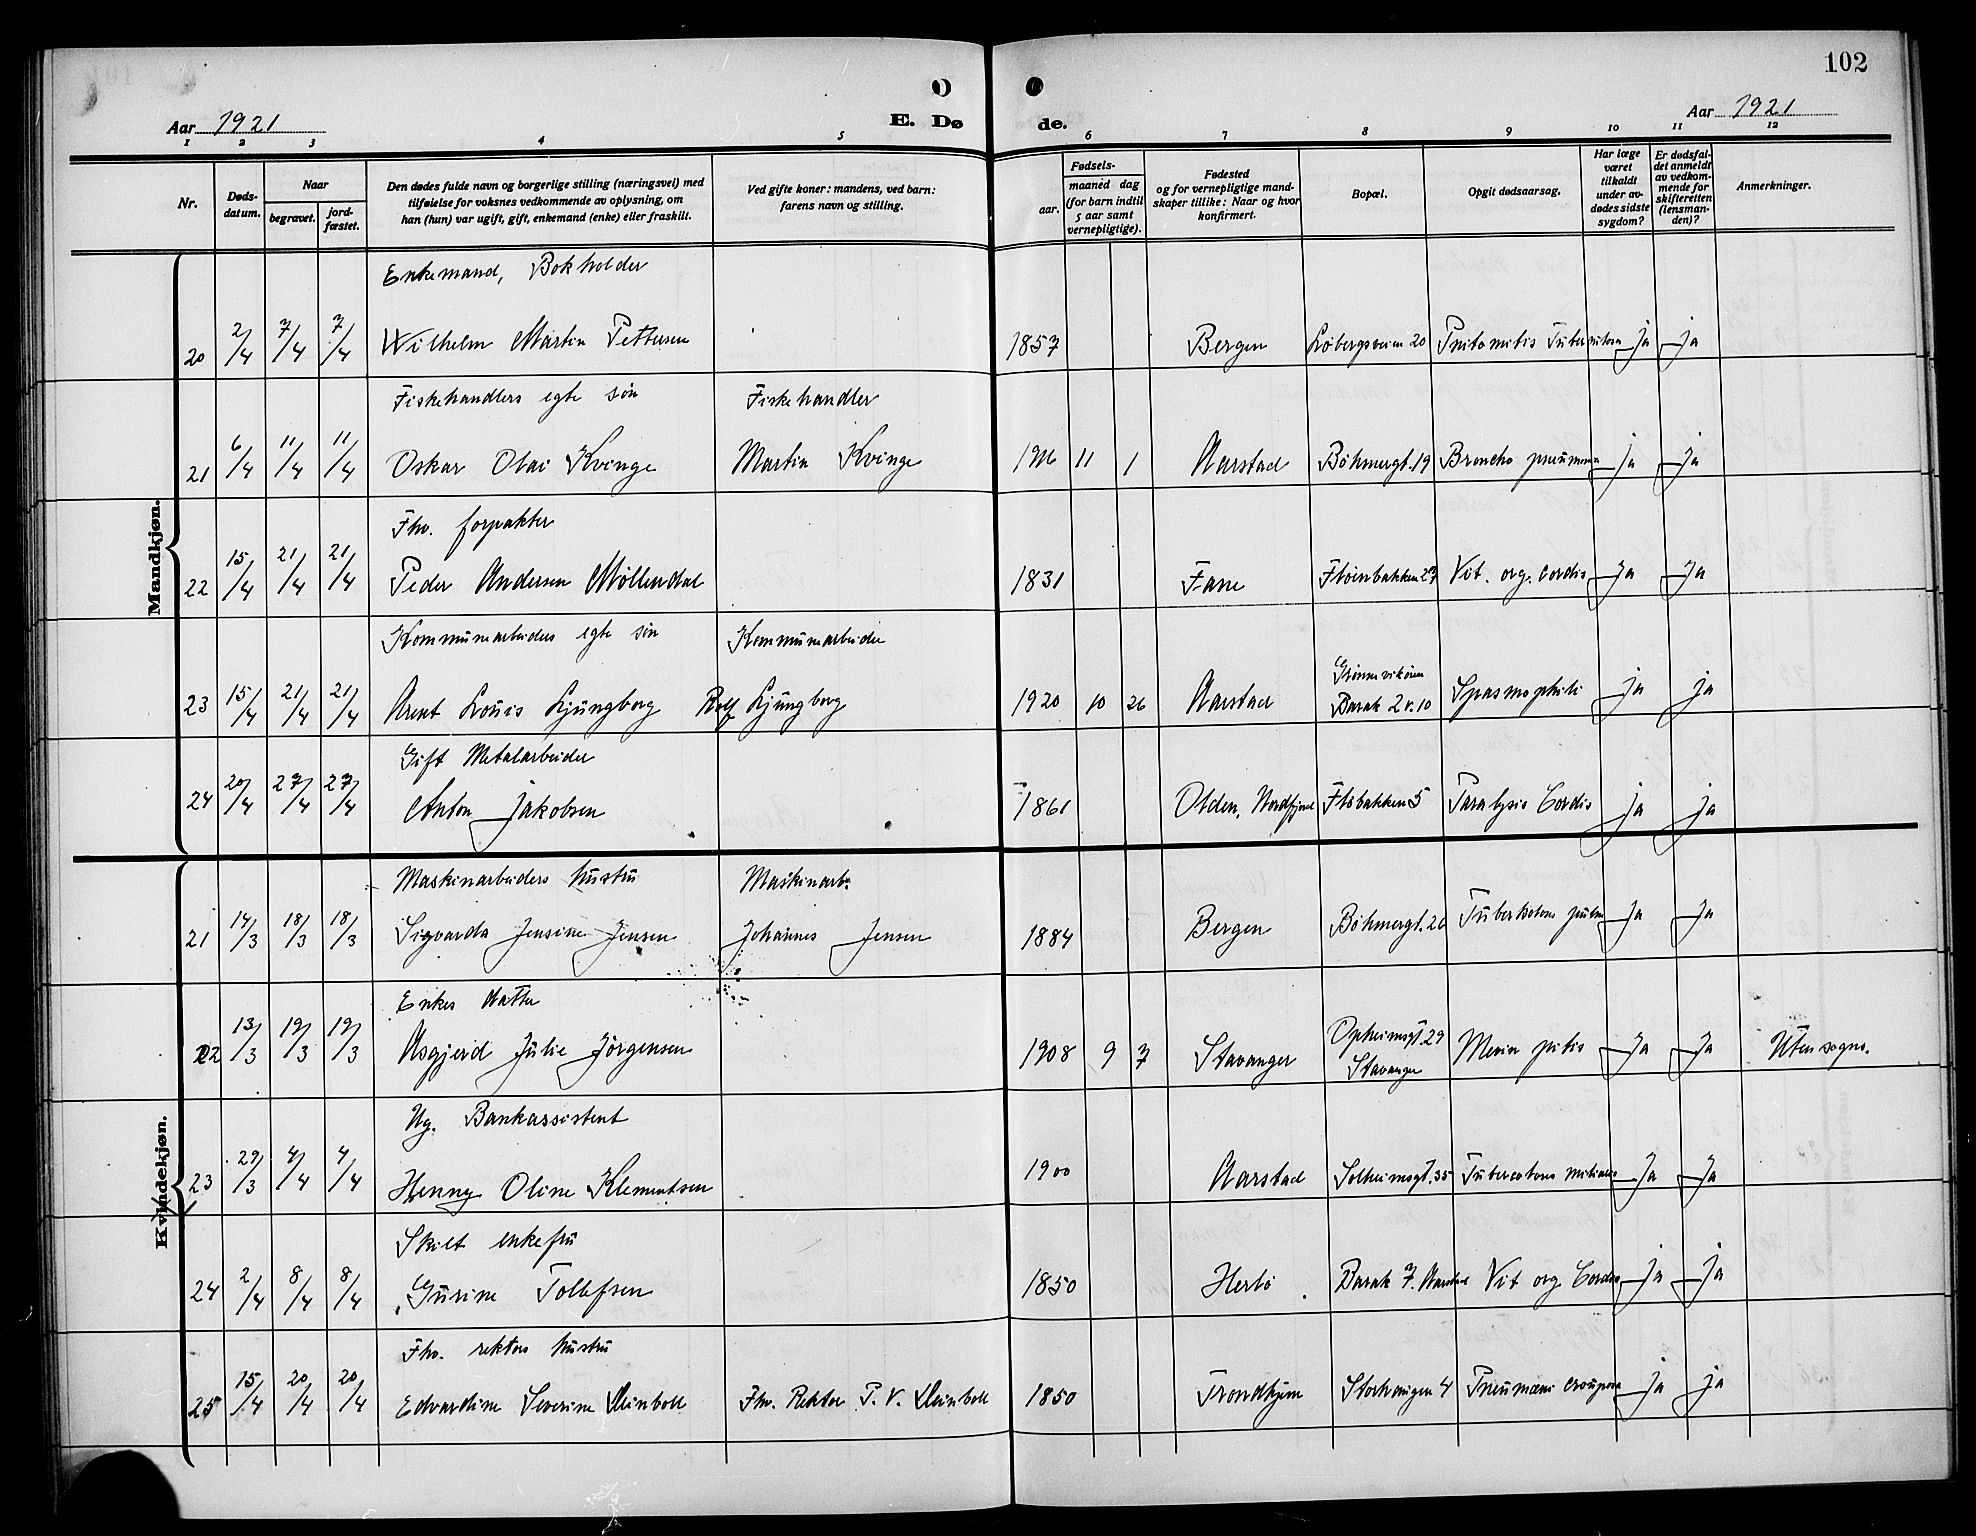 102
Aar 1921
E. Dø
de.
Aar 1921
1 2 3 4 5 6 7 8 9 10 11 12
Nr.
Døds-
datum.
Naar
begravet.
jord-
fæstet.
Den dødes fulde navn og borgerlige stilling (næringsvei) med
tilføielse for voksnes vedkommende av oplysning, om
han (hun) var ugift, gift, enkemand (enke) eller fraskilt.
Ved gifte koner: mandens, ved barn:
farens navn og stilling.
Fødsels-
aar.
maaned dag
(for barn indtil
5 aar samt
vernepligtige).
Fødested
og for vernepligtige mand-
skaper tillike: Naar og hvor
konfirmert.
Bopæl.
Opgit dødsaarsag.
Har læge
været
tilkaldt
under av-
dødes sidste
sygdom?
Er dødsfal-
det anmeldt
av vedkom-
mende for
skifteretten
(lensman-
den)?
Anmerkninger.
Mandkjøn.
Enkemand, Bokholder
20 2/4 7/4 7/4 Wilhelm Martin Pettersen 1857 Bergen Løbergsveien 20 ja ja
Fiskehandlers egte søn Fiskehandler
21 6/4 11/4 11/4 Oskar Olai Kvinge Martin Kvinge 11 1 Aarstad Böhmergt. 19 Broncho pneumoni ja ja
Fhv. forpakter
22 15/4 21/4 21/4 Peder Andersen Møllendal 1831 Fane Fløienbakken 27 Vit. org. cordis Ja Ja
Kommunearbeiders egte søn Kommunearbeider
23 15/4 21/4 21/4 Arent Louis Ljungborg Rolf Ljungborg 1920 10 26 Aarstad Barak 2 v. 10 Spasmophili ja ja
Gift Metalarbeider
24 20/4 27/4 27/4 Anton Jakobsen 1861 Olden, Nordfjord Flöbakken 5 Paralysis Cordis ja ja
Kvindekjøn.
Maskinarbeiders hustru Maskinarb.
21 14/3 18/3 18/3 Sigvarda Jensine Jensen Johannes Jensen 1884 Bergen Böhmergt. 20 Ja Ja
Enkes datter
22 13/3 19/3 19/3 Asgjerd Julie Jörgensen 1908 9 7 Stavanger Opheimsgt. 29 Ja Ja Uten sogns.
Stavanger
Ug. Bankassistent
23 29/3 4/4 4/4 Henny Oline Klementsen 1900 Aarstad Solheimsgt. 35 Ja Ja
Skilt enkefru
24 2/4 8/4 8/4 Gurine Tollefsen 1850 Herlö Barak 7. Aarstad Vit org Cordis ja ja
Fhv. rektors hustru
25 15/4 20/4 20/4 Edvardine Severine Steinboll Fhv. Rektor P. V. Steinboll 1850 Trondhjem Storhaugen 4 ja ja